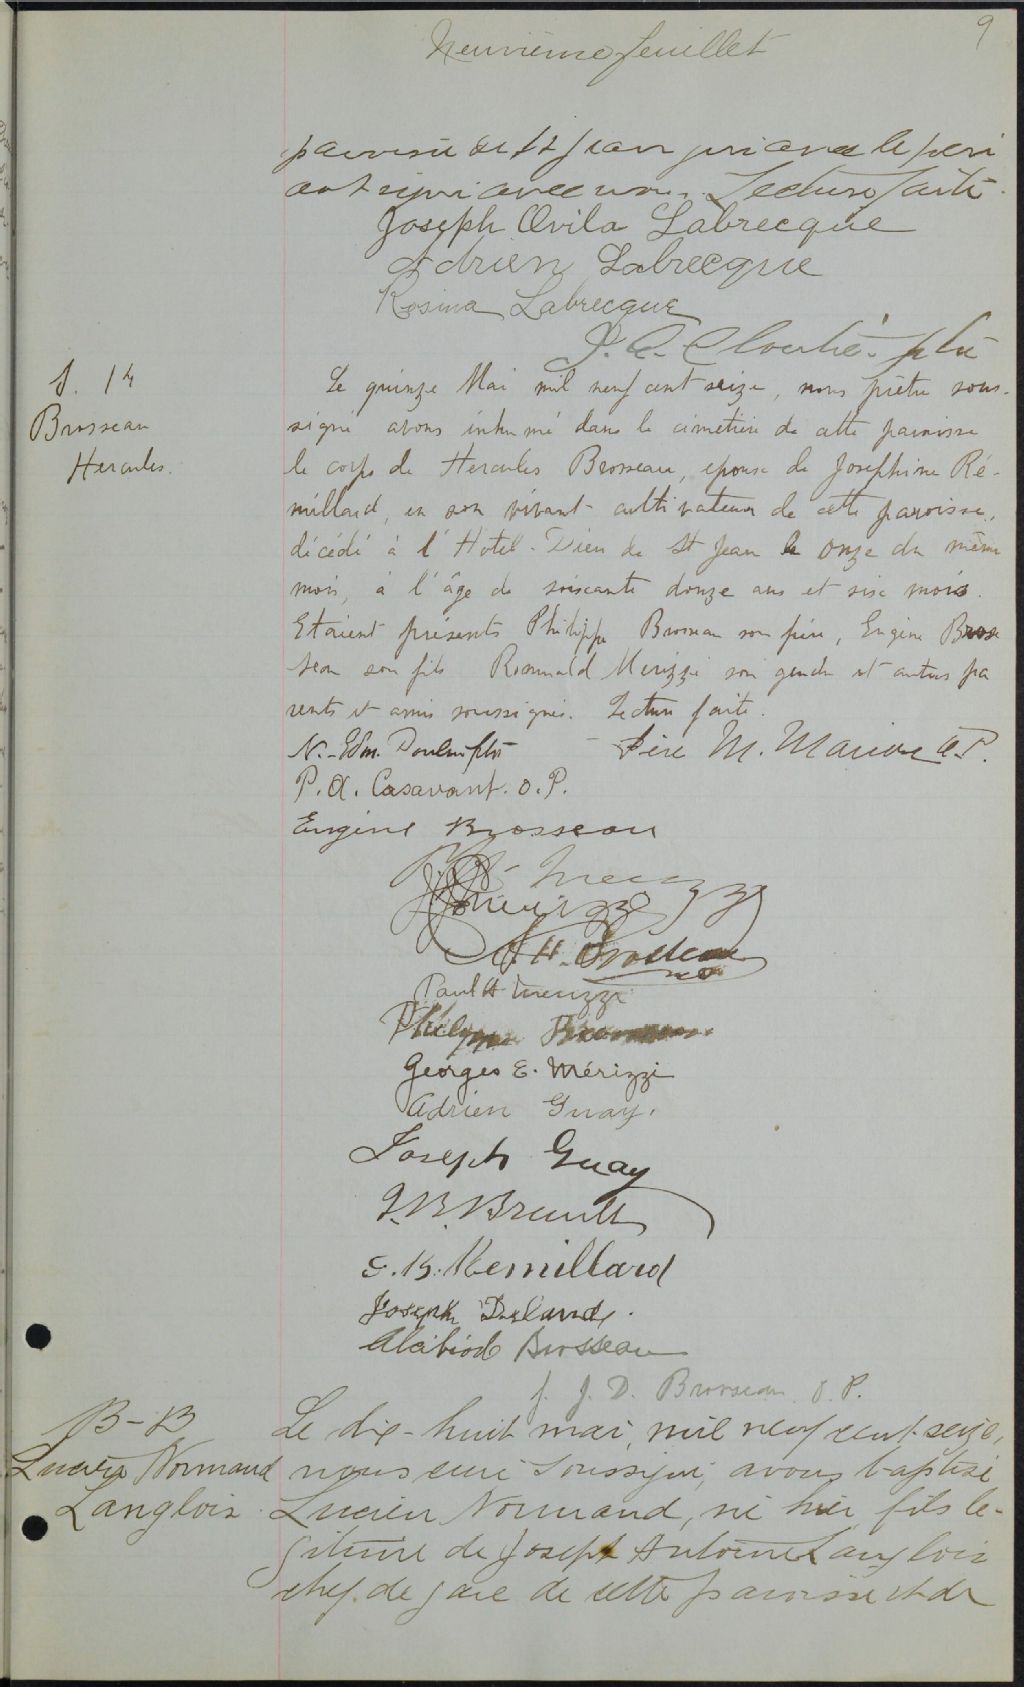 9
Neuvième feuillet
paroisse de St Jean qui avec le père
ont signé avec nous. Lecture faite.
Joseph Ovila Labrecque
Adrien Labrecque
Rosina Labrecque
J. A. Cloutié. ptre
S. 14
Brosseau
Hercules.
Le quinze Mai mil neuf cent seize, nous prêtre sous-
signé avons inhumé dans le cimetière de cette paroisse
le corps de Hercules Brosseau, epoux de Josephine Ré-
millard, en son vivant cultivateur de cette paroisse,
décédé à l'Hotel-Dieu de St Jean le onze du même
mois, à l'âge de soixante douze ans et six mois.
Etaient présents Philippe Brosseau son frère, Eugène Bros
seau son fils Romuald Merizzi son gendre et autres pa
rents et amis soussignés. Lecture faite.
N.-Edm. ptre
frère M. Marion O.P.
P. A. Casavant. O.P.
Eugène Brosseau
Merizzi
Merizzi
A. H. Brosseau
Paul H Merizzi
Philippe Brosseau
Georges E. Mérizzi
Adrien Guay.
Joseph Guay
J. B.
E. B. Remillard
Joseph Deland.
Alcibiade Brosseau
f. J. D. Brosseau O.P.
B-13
Lucien Normand
Langlois
Le dix-huit mai, mil neuf cent seize,
nous curé soussigné, avons baptisé
Lucien Normand, né hier fils lé-
gitime de Joseph Antoine Langlois
chef de gare de cette paroisse et de